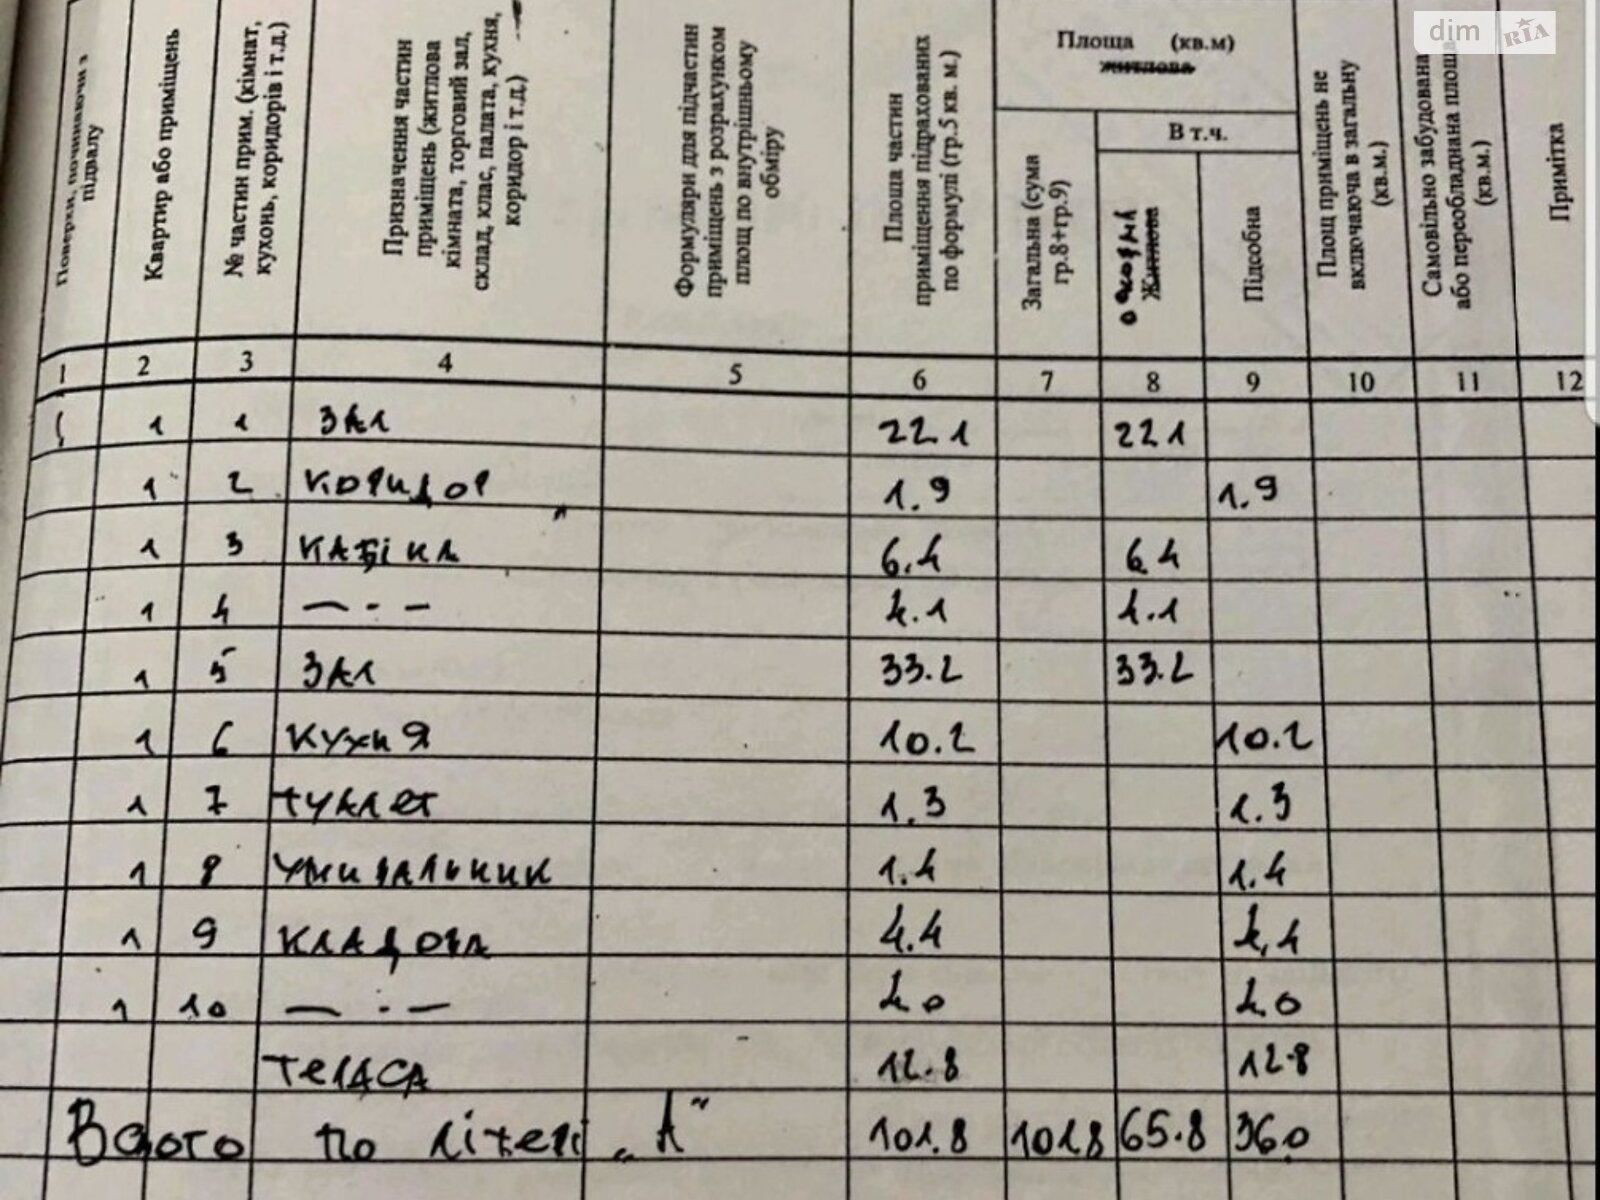 dim RIA
Поверхи, починаючи з
підвалу
Квартир або приміщень
№ частин прим. (кімнат,
кухонь, коридорів і т.д.)
Призначення частин
приміщень (житлова
кімната, торговий зал,
склад, клас, палата, кухня,
коридор і т.д.)
Формуляри для підчастин
приміщень з розрахунком
площ по внутрішньому
обміру
Площа частин
приміщення підрахованих
по формулі (гр.5 кв. м.)
Площа (кв.м)
житлова
Загальна (сума
гр.8+гр.9)
В т.ч.
Житлова
Підсобна
Площ приміщень не
включаюча в загальну
(кв.м.)
Самовільно забудована
або переобладнана площа
(кв.м.)
Примітка
1 2 3 4 5 6 7 8 9 10 11 12
1 1 1 зал 22.1 22.1
1 2 коридор 1.9 1.9
1 3 кабіна 6.4 6.4
1 4 — · — 4.1 4.1
1 5 зал 33.2 33.2
1 6 кухня 10.2 10.2
1 7 туалет 1.3 1.3
1 8 умивальник 1.4 1.4
1 9 кладова 4.4 4.4
1 10 — · — 4.0 4.0
тераса 12.8 12.8
Всього по літері „А" 101.8 101.8 65.8 36.0